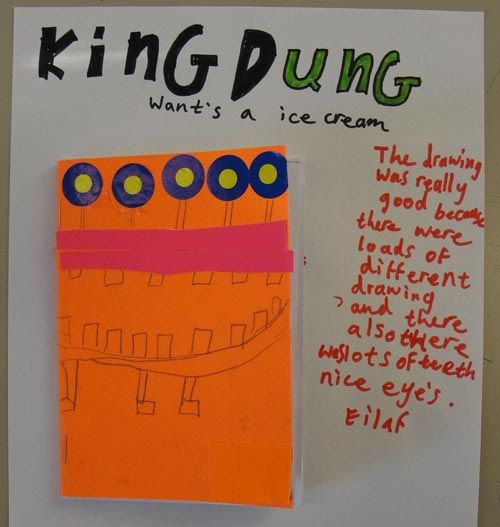 KinG DunG
Want's a ice cream
The drawing
was really
good because
there were
loads of
different
drawing
, and there
also there
was lots of teeth
nice eye's.
Eilaf